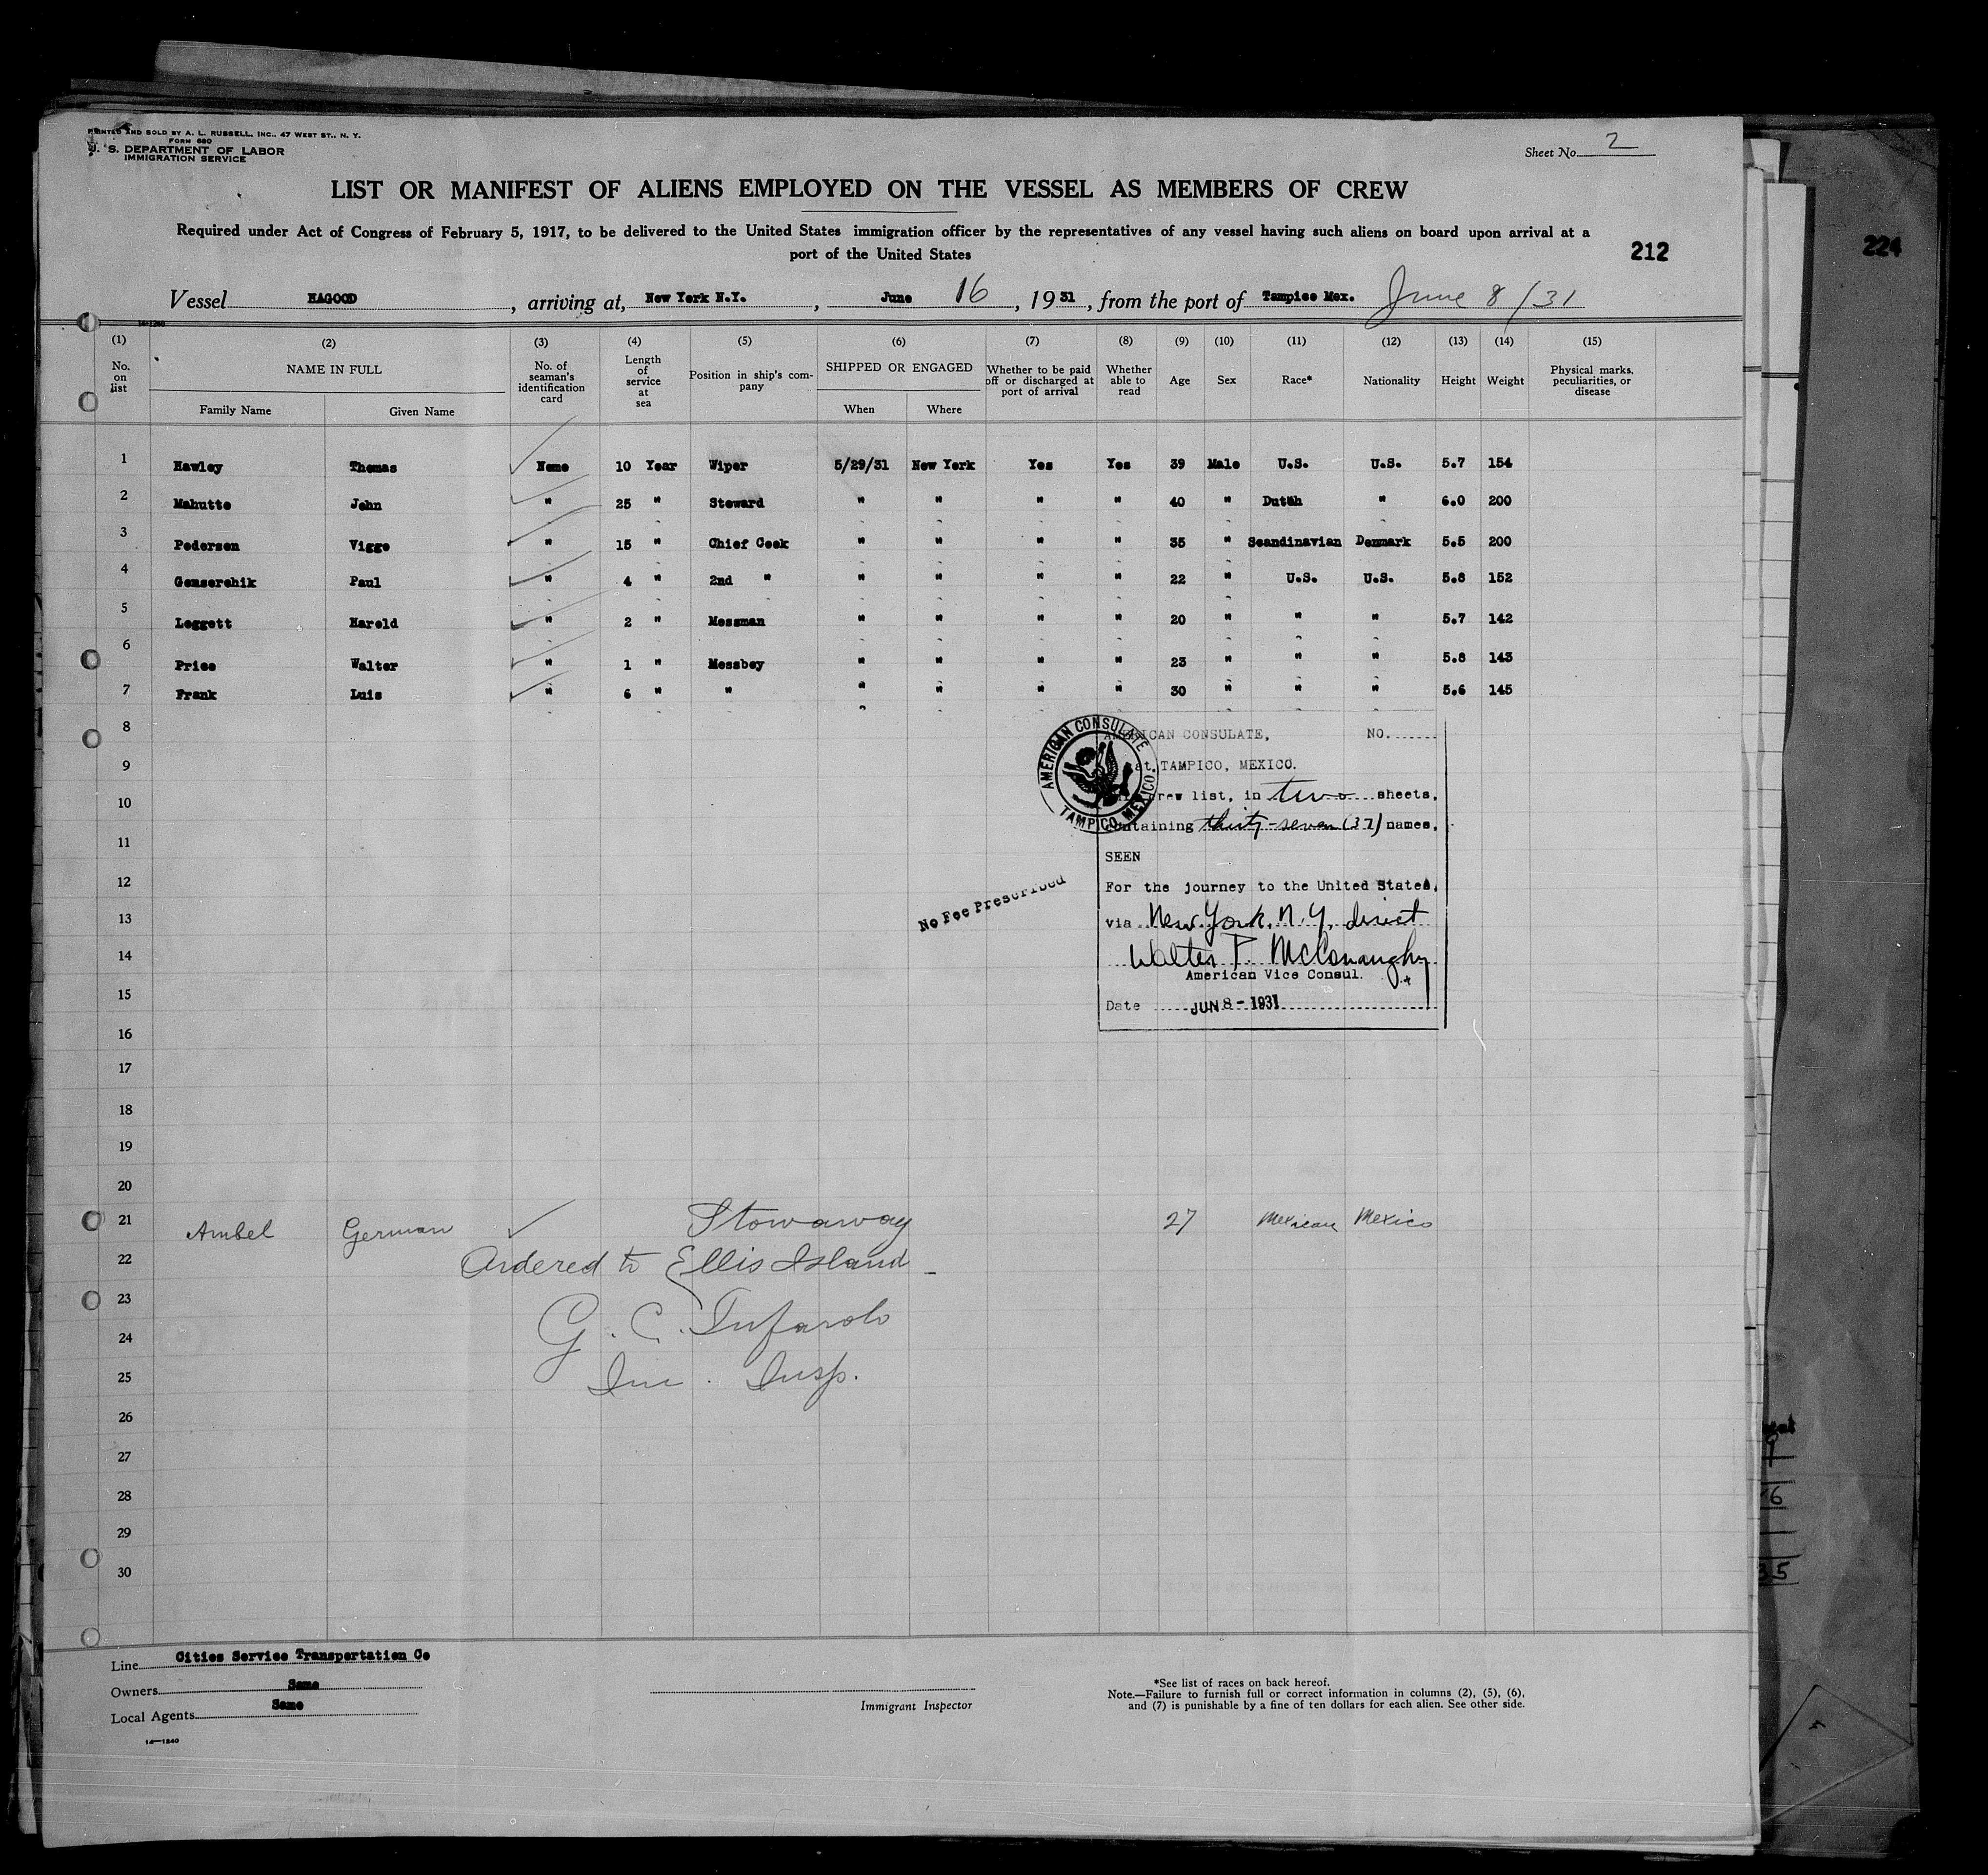 PRINTED AND SOLD BY A. L. RUSSELL, INC., 47 WEST ST., N. Y.
FORM 680
U. S. DEPARTMENT OF LABOR
IMMIGRATION SERVICE
Sheet No. 2
LIST OR MANIFEST OF ALIENS EMPLOYED ON THE VESSEL AS MEMBERS OF CREW
Required under Act of Congress of February 5, 1917, to be delivered to the United States immigration officer by the representatives of any vessel having such aliens on board upon arrival at a
port of the United States
212
224
Vessel HAGOOD, arriving at, New York N.Y., June 16, 1931, from the port of Tampico Mex. June 8/31
14-1240
(1) (2) (3) (4) (5) (6) (7) (8) (9) (10) (11) (12) (13) (14) (15)
No. on list NAME IN FULL Family Name Given Name No. of seaman's identification card Length of service at sea Position in ship's company SHIPPED OR ENGAGED When Where Whether to be paid off or discharged at port of arrival Whether able to read Age Sex Race* Nationality Height Weight Physical marks, peculiarities, or disease
1 Hawley Thomas None 10 Year Wiper 5/29/31 New York Yes Yes 39 Male U.S. U.S. 5.7 154
2 Mahutte John " 25 " Steward " " " " 40 " Dutch " 6.0 200
3 Pedersen Viggo " 15 " Chief Cook " " " " 35 " Scandinavian Denmark 5.5 200
4 Gonserchik Paul " 4 " 2nd " " " " " 22 " U.S. U.S. 5.8 152
5 Leggett Harold " 2 " Messman " " " " 20 " " " 5.7 142
6 Price Walter " 1 " Messboy " " " " 23 " " " 5.8 143
7 Frank Luis " 6 " " " " " " 30 " " " 5.6 145
8
9
10
11
12
13
14
15
16
17
18
19
20
AMERICAN CONSULATE
TAMPICO, MEXICO.
AMERICAN CONSULATE, NO.
at TAMPICO, MEXICO.
crew list, in two sheets,
containing thirty-seven (37) names,
SEEN
For the journey to the United States,
via New York, N.Y. direct
Walter P. McConaughy
American Vice Consul.
Date JUN 8 - 1931
No Fee Prescribed
21 Ambel German Stowaway 27 Mexican Mexico
22 Ordered to Ellis Island
23
24 G. C.
25 Im. Insp.
26
27
28
29
30
Line Cities Service Transportation Co
Owners Same
Local Agents Same
14-1240
Immigrant Inspector
*See list of races on back hereof.
Note.—Failure to furnish full or correct information in columns (2), (5), (6),
and (7) is punishable by a fine of ten dollars for each alien. See other side.